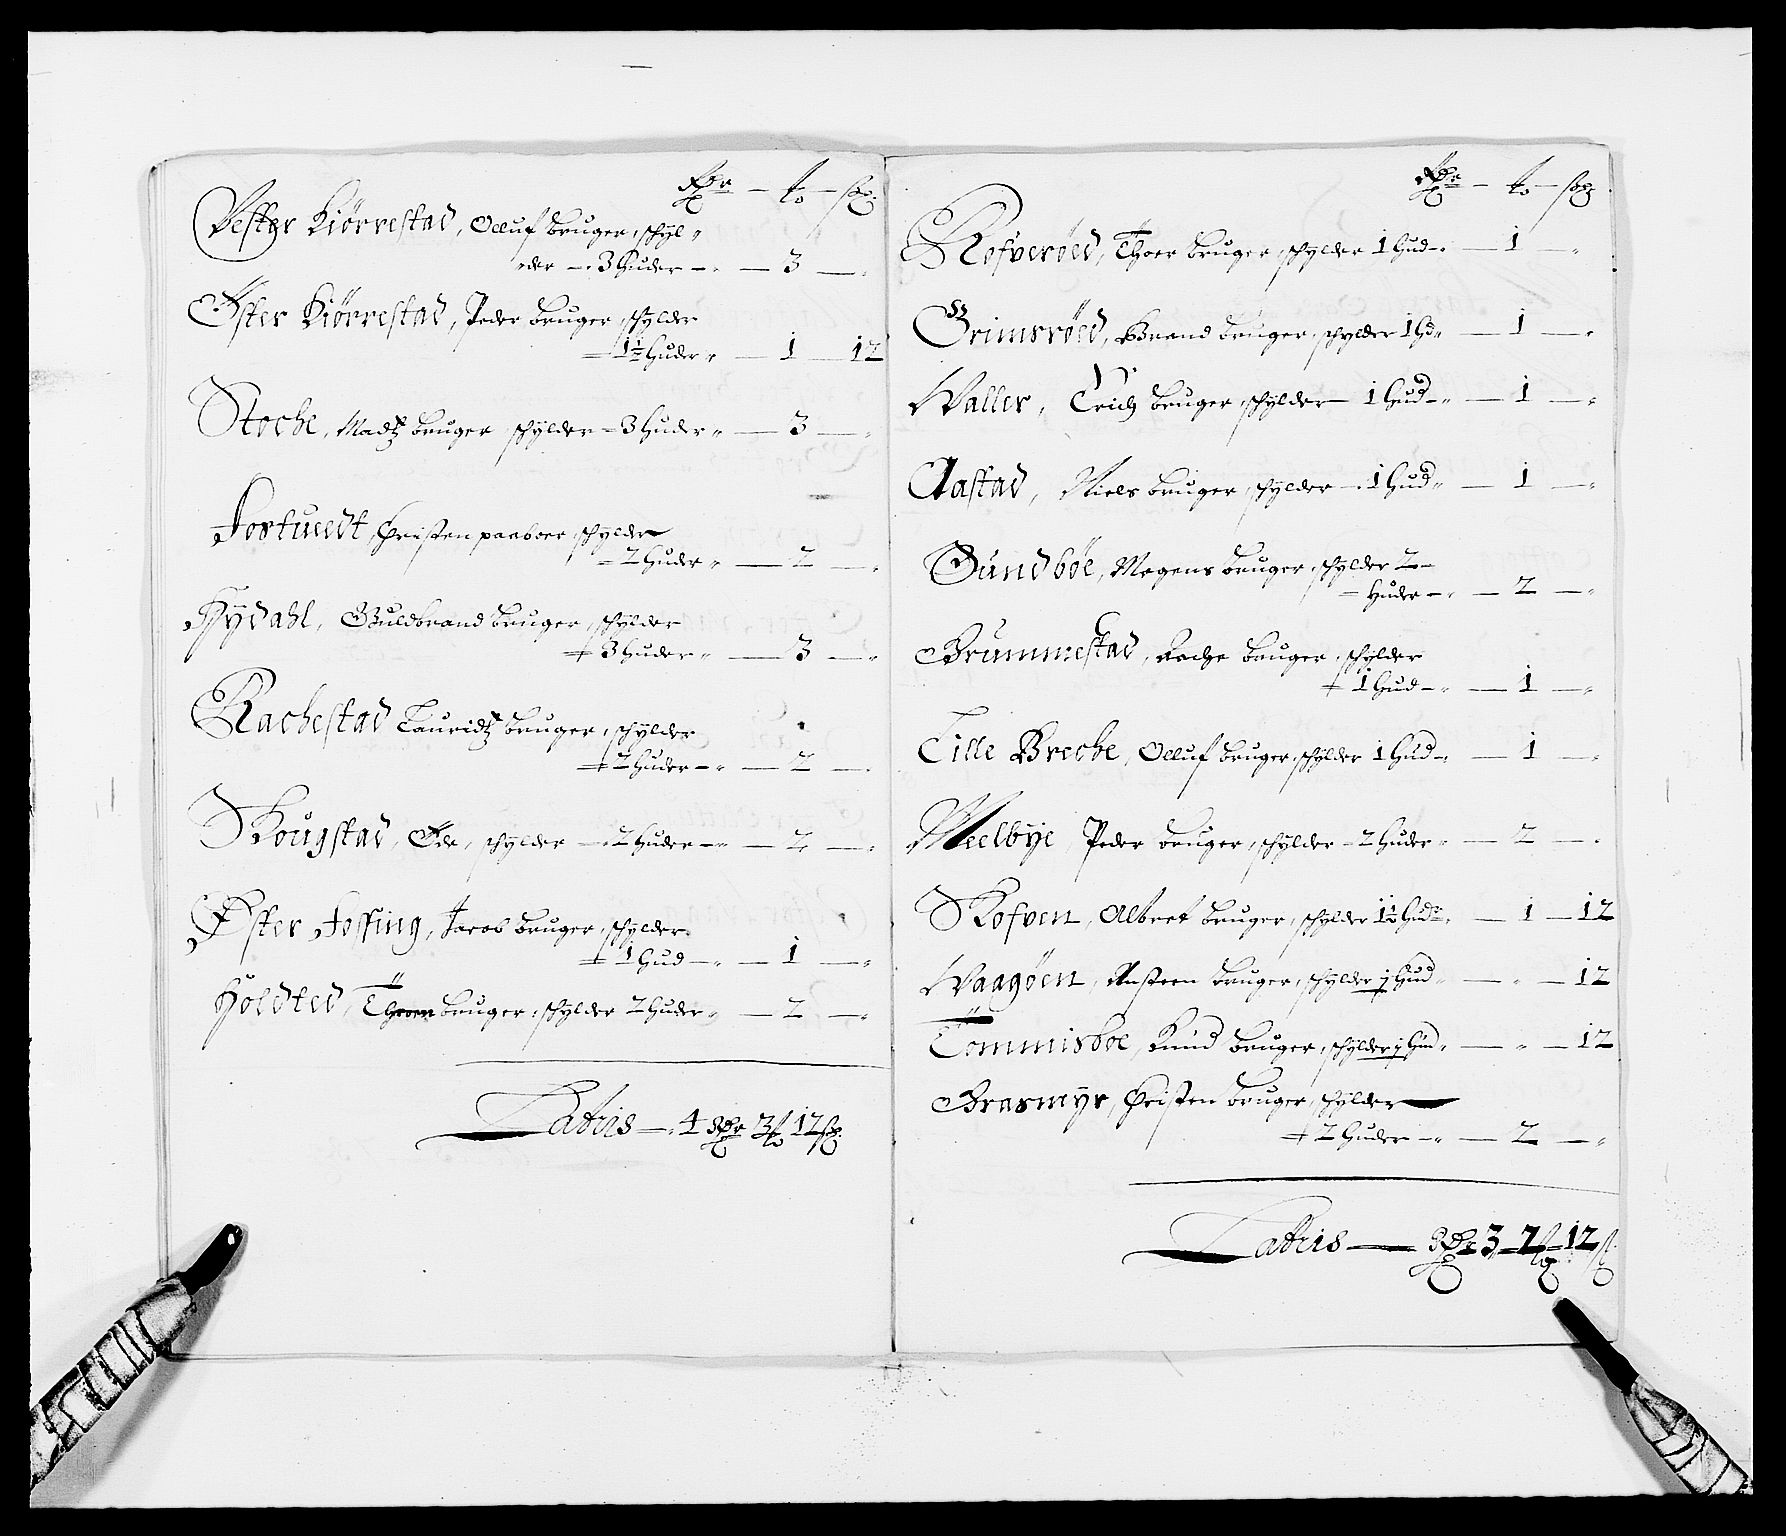 Rdr — ₶ — sk
Vester Kiørrestad, Olluf bruger, schyl„
„der — 3 Huder — „ — 3 — „
Øster Kiørrestad, Peder bruger, schylder
— 1½ Huder „ — 1 — 12
Stocke, Madtz bruger schylder — 3 Huder „ — 3 — „
Fortuedt, Christen paaboer, schylder
— 2 Huder „ — 2 — „
Hydahl, Guldbrand bruger, schylder
— 3 Huder „ — 3 — „
Rachestad Lauridtz bruger, schylder
— 2 Huder — „ — 2 — „
Skougstad, Ode, schylder — 2 Huder — „ — 2 — „
Øster Jossing, Jacob bruger, schylder
— 1 Hud — „ — 1 — „
Holdted, Thoer bruger, schylder 2 Huder „ — 2 — „
Lateris — 4 Rdr 3 ₶ 12 sk
Rdr — ₶ — sk
Rofverøed, Thoer bruger, schylder 1 Hud — „ — 1 — „
Grimsrøed, Brand bruger, schylder 1 Hd „ — 1 — „
Waller, Erich bruger, schylder — 1 Hud — „ — 1 — „
Aastad, Niels bruger, schylder — 1 Hud „ — 1 — „
Gundbøe, Mogens bruger, schylder 2 —
— Huder — „ — 2 — „
Brummestad, bruger, schylder
— 1 Hud — „ — 1 — „
Lille Breche, Olluf bruger, schylder 1 Hud — „ — 1 — „
Meelbye, Peder bruger, schylder — 2 Huder „ — 2 — „
Skofven, Albret bruger, schylder 1½ Hud „ — 1 — 12
Waagøen, Ansteen bruger, schylder ½ Hud „ — „ — 12
Tommisboe, Knud bruger, schylder ½ Hud „ — „ — 12
Grasmyr, Christen bruger, schylder
— 2 Huder — „ — 2 — „
Lateris — Rdr 3 — 2 ₶ — 12 sk